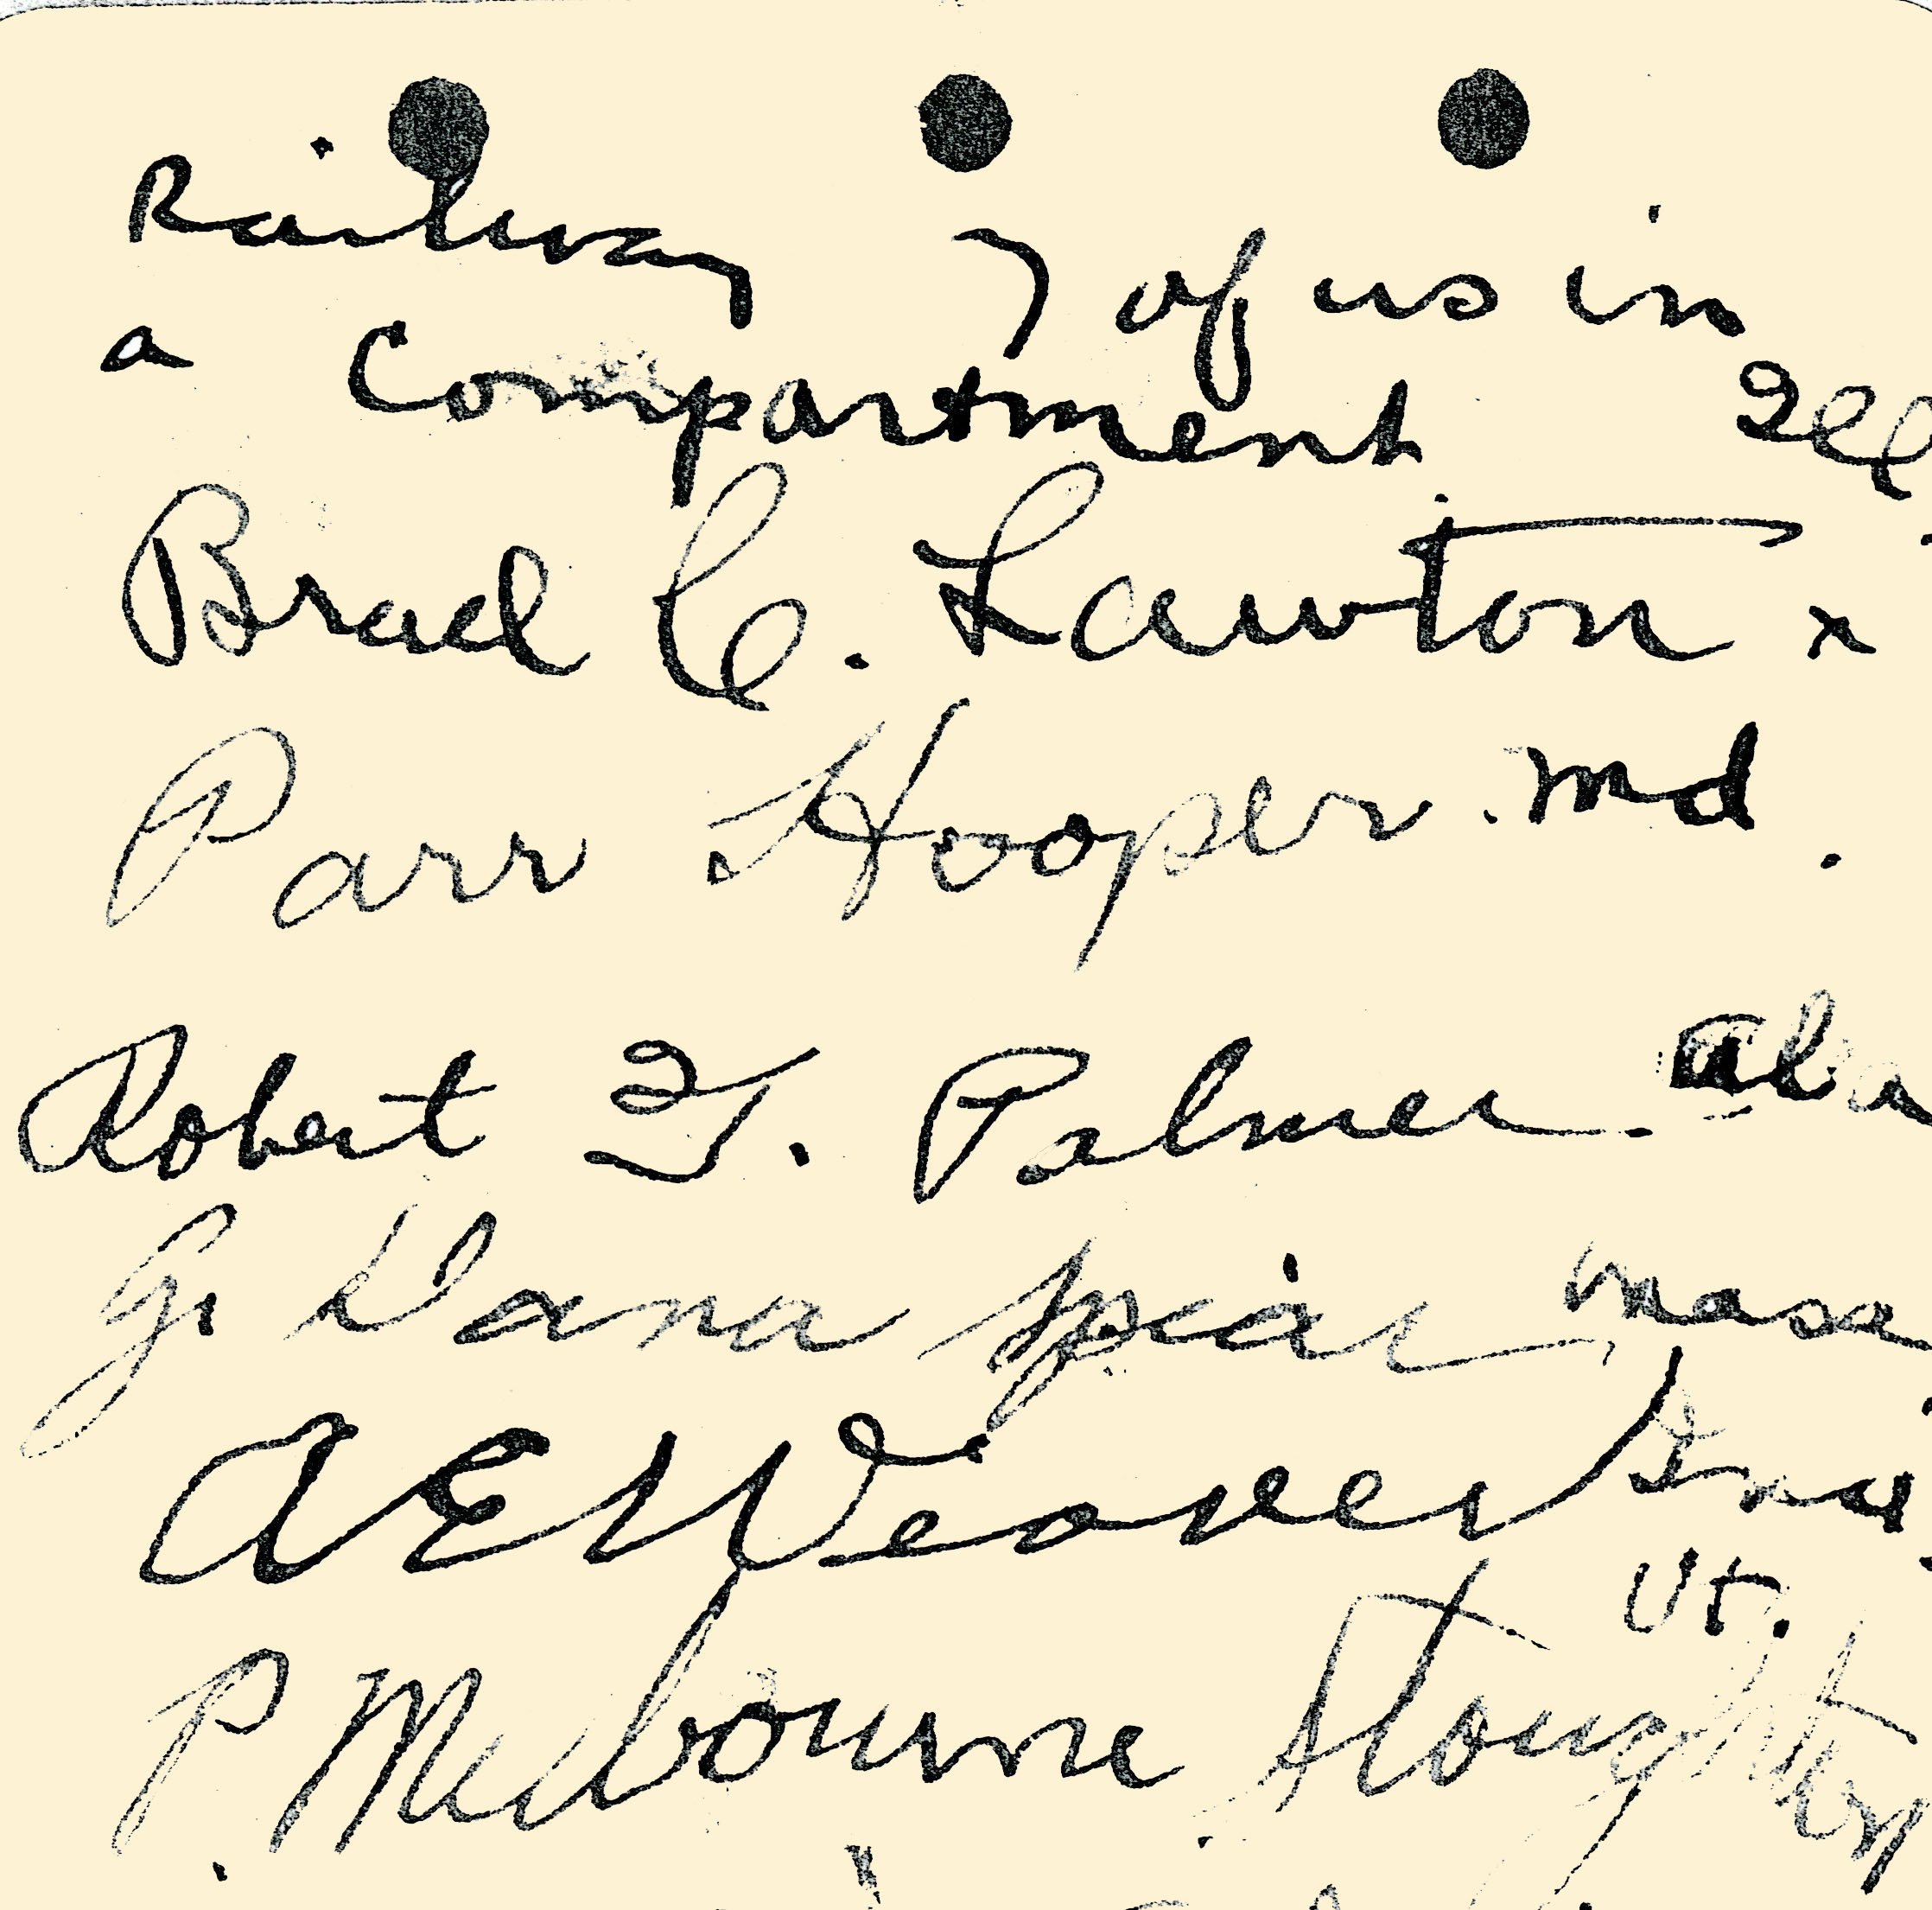 Railway 7 of us in
a Compartment Ill
Brael C. Lawton x
Parr Hooper. Md.
Robert I. Palmer. Ala
G. Dana Spear Mass
A E Weaver Ind.
Vt.
P. Melbourne Stoughton